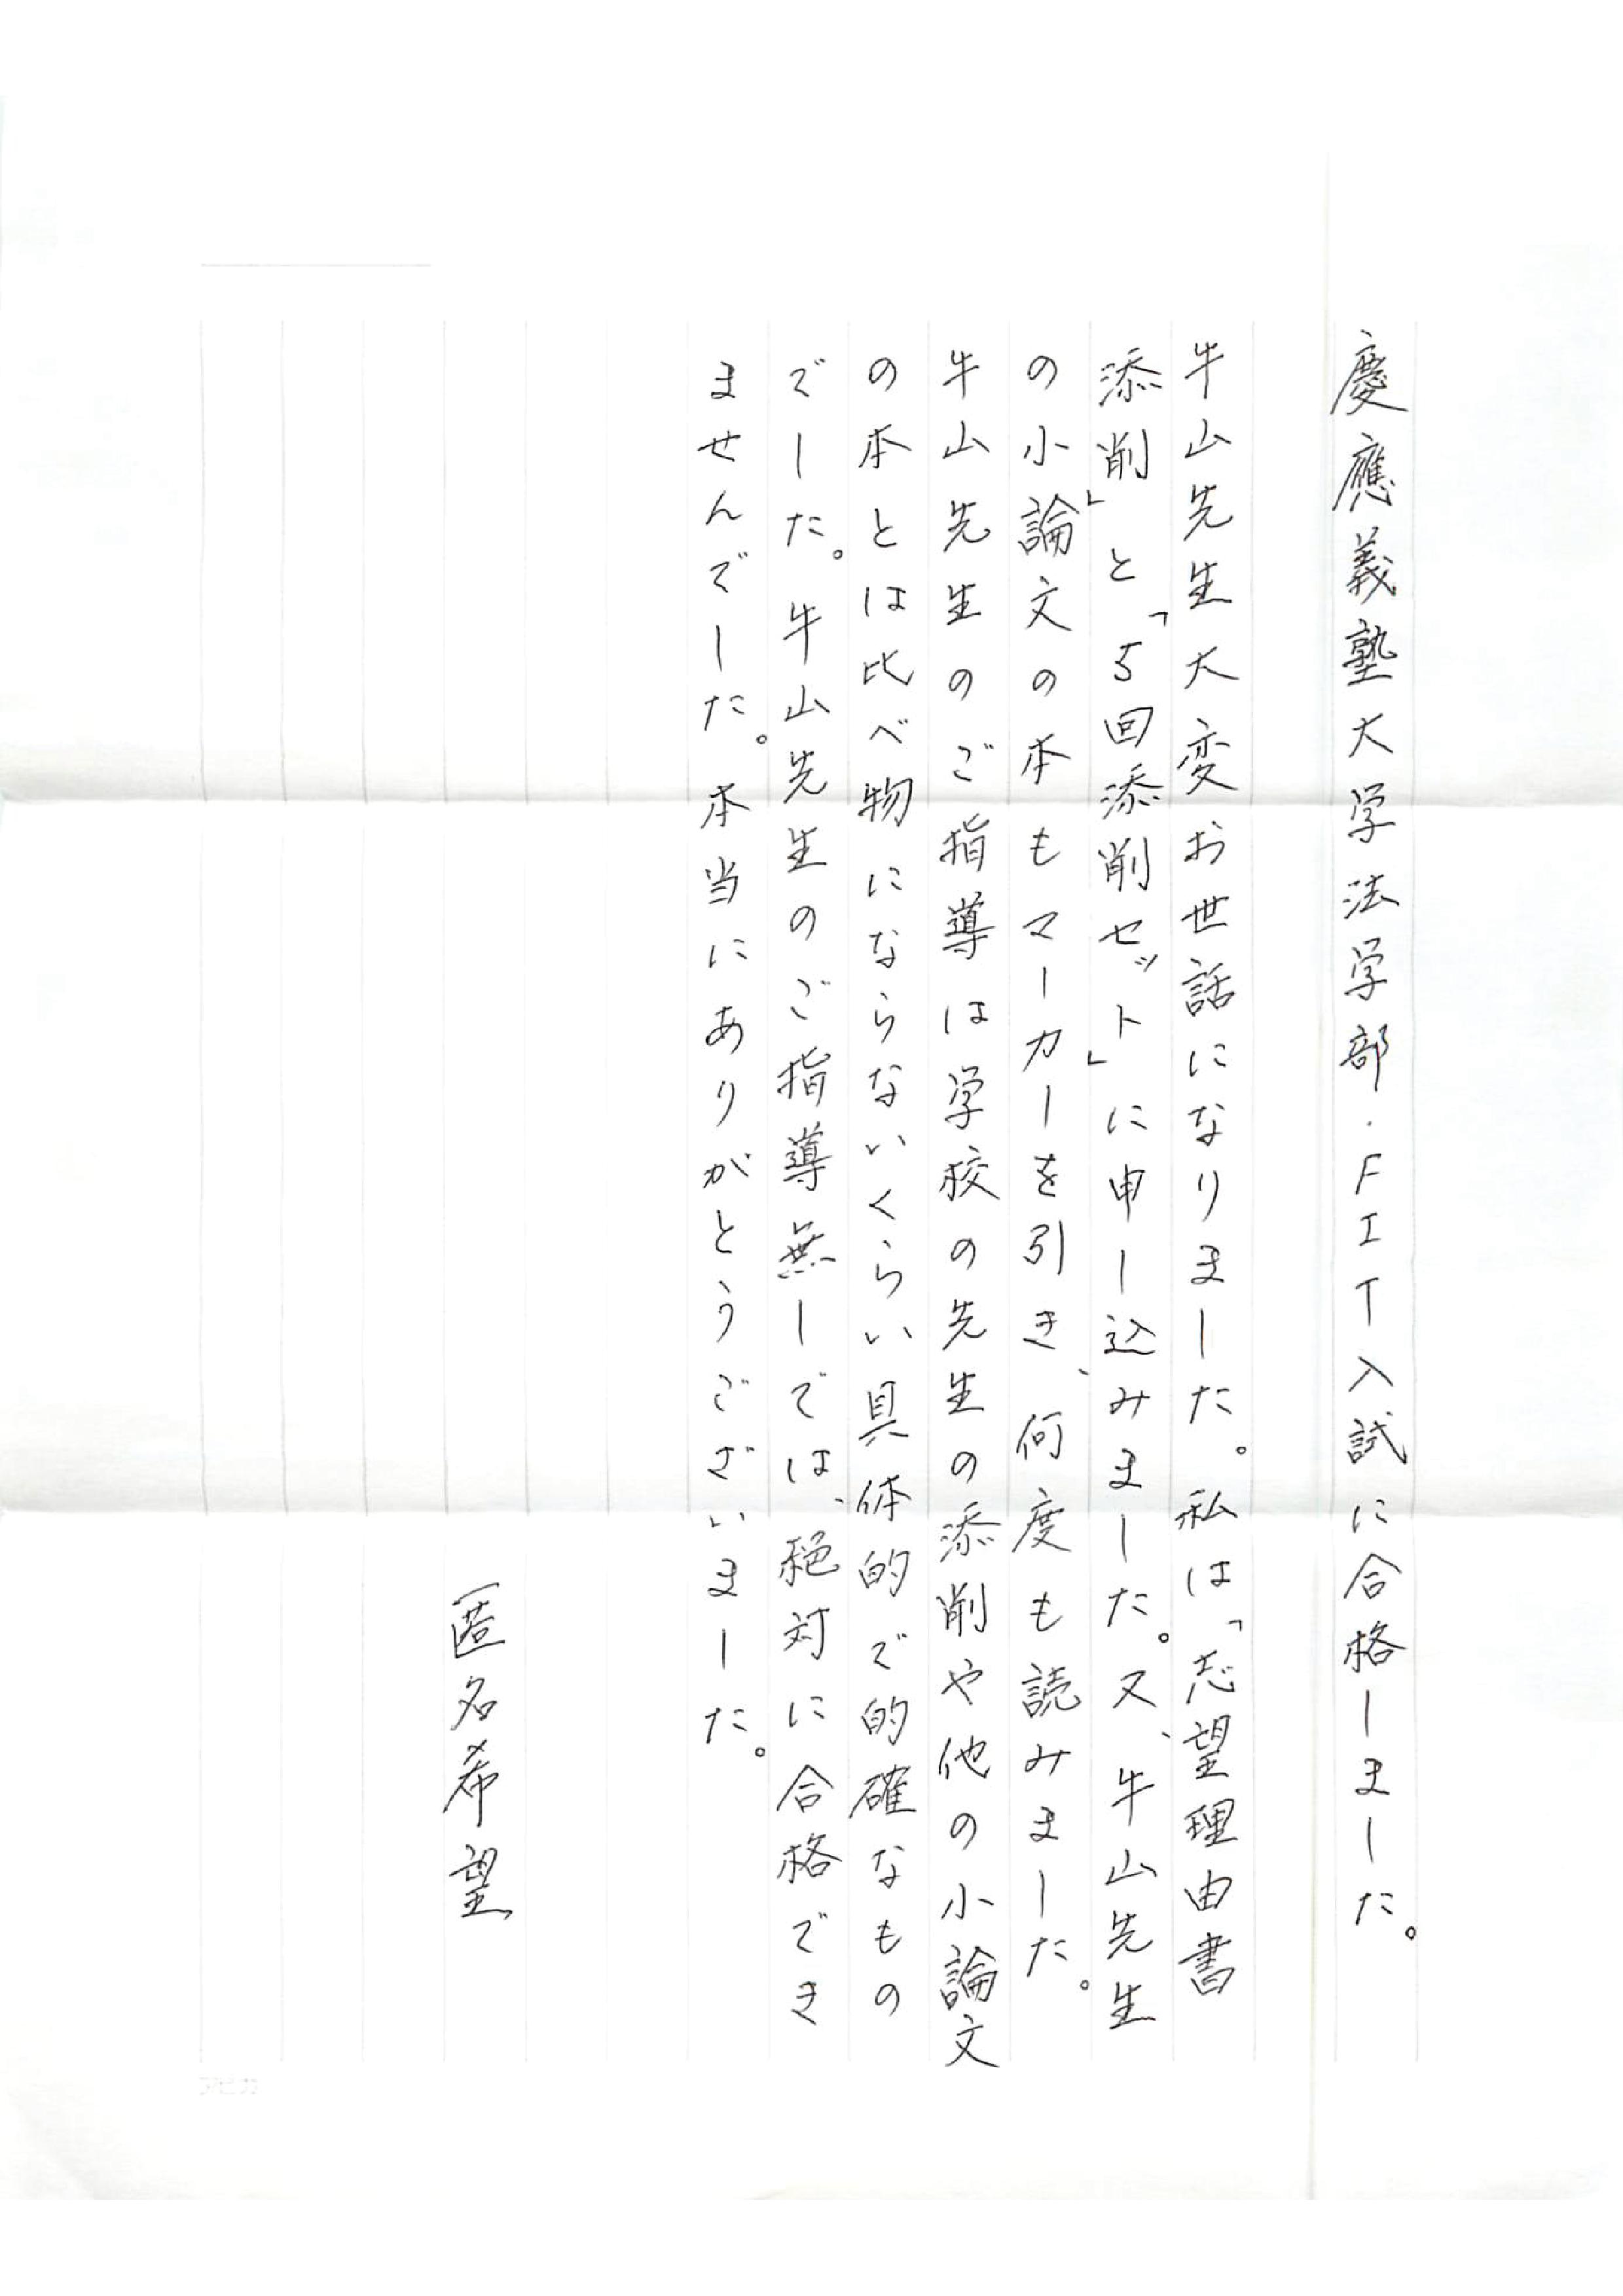 慶應義塾大学法学部・FIT入試に合格しました。
牛山先生大変お世話になりました。私は「志望理由書
添削」と「5回添削セット」に申し込みました。又、牛山先生
の小論文の本もマーカーを引き、何度も読みました。
牛山先生のご指導は学校の先生の添削や他の小論文
の本とは比べ物にならないくらい具体的で的確なもの
でした。牛山先生のご指導無しでは、絶対に合格でき
ませんでした。本当にありがとうございました。
匿名希望
アピカ